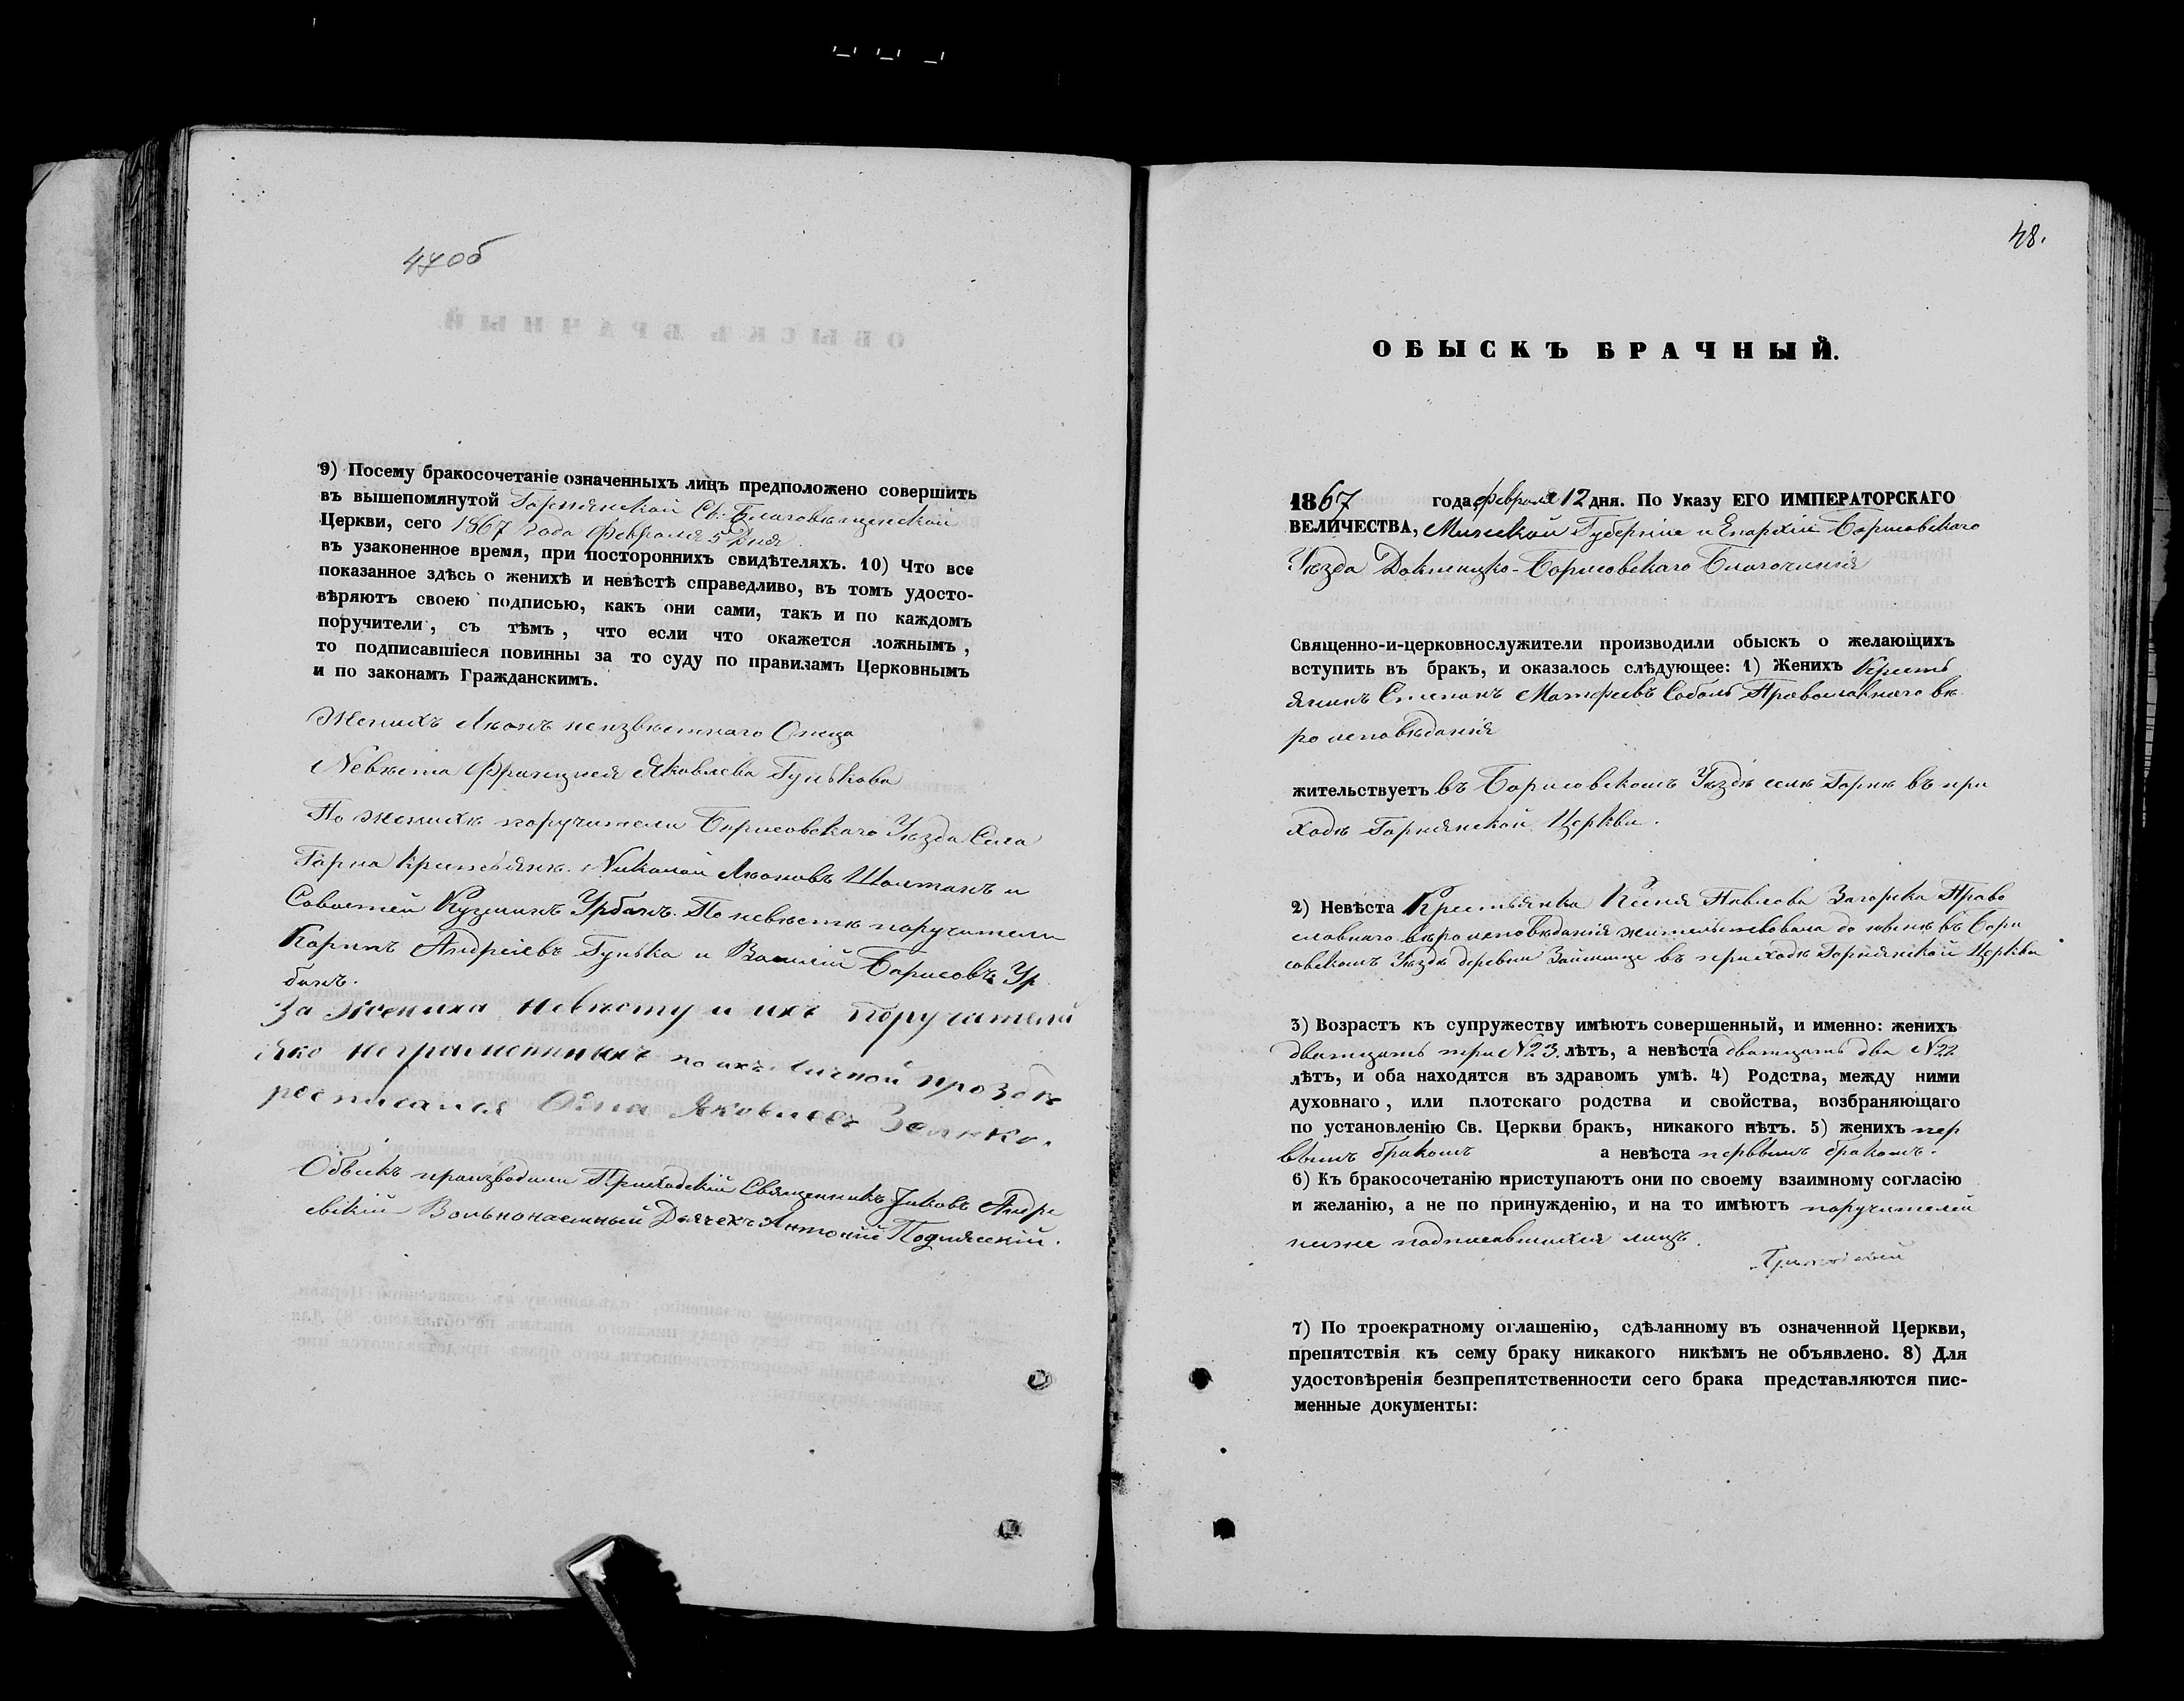 47об
9) Посему бракосочетаніе означенныхъ лицъ предположено совершить
въ вышепомянутой Горнянской Св: Благовѣщенской
Церкви, сего 1867 года Февраля 5 дня
въ узаконенное время, при постороннихъ свидѣтеляхъ. 10) Что все
показанное здѣсь о женихѣ и невѣстѣ справедливо, въ томъ удосто-
вѣряютъ своею подписью, какъ они сами, такъ и по каждомъ
поручители, съ тѣмъ, что если что окажется ложнымъ,
то подписавшіеся повинны за то суду по правиламъ Церковнымъ
и по законамъ Гражданскимъ.
Женихъ Лѣонъ неизвѣстнаго Отца
Невѣста Францишка Яковлева Гунькова
По женихѣ поручители Борисовскаго Уѣзда Села
Горна крестьянѣ Николай Лѣоновъ и
Кузминъ Урбанъ. По невѣстѣ поручители
Карпъ Андреіевъ Гунька и Василій Борисовъ Ур
банъ.
За Жениха Невѣсту и ихъ Поручителей
яко неграмотныхъ по ихъ личной прозбѣ
росписался Яковлевъ Зенько.
Обыскъ производили Приходскій Священникъ Іаковъ Андре
евскій Вольнонаемный Дьячекъ Антоній
48.
ОБЫСКЪ БРАЧНЫЙ.
1867 года Февраля 12 дня. По Указу ЕГО ИМПЕРАТОРСКАГО
ВЕЛИЧЕСТВА, Минской Губерніи и Епархіи Борисовскаго
Уѣзда Докшицко-Борисовскаго Благочинія
Священно-и-церковнослужители производили обыскъ о желающихъ
вступить въ бракъ, и оказалось слѣдующее: 1) Женихъ Кресть
янинъ Степанъ Матфеевъ Соболь Православнаго вѣ
роисповѣданія
жительствуетъ въ Борисовскомъ Уѣздѣ селѣ Горнѣ въ при
ходѣ Горнянской Церкви.
2) Невѣста Крестьянка Ксенія Павлова Загорска Право
славнаго вѣроисповѣданія жительствовала до нынѣ въ Бори
совскомъ Уѣздѣ деревни въ приходѣ Горнянской Церкви
3) Возрастъ къ супружеству имѣютъ совершенный, и именно: женихъ
дватцать три №23. лѣтъ, а невѣста дватцать два №22
лѣтъ, и оба находятся въ здравомъ умѣ. 4) Родства, между ними
духовнаго, или плотскаго родства и свойства, возбраняющаго
по установленію Св. Церкви бракъ, никакого нѣтъ. 5) женихъ пер
вымъ бракомъ а невѣста первымъ бракомъ.
6) Къ бракосочетанію приступаютъ они по своему взаимному согласію
и желанію, а не по принужденію, и на то имѣютъ поручителей
ниже подписавшихся лицъ.
7) По троекратному оглашенію, сдѣланному въ означенной Церкви,
препятствія къ сему браку никакого никѣмъ не объявлено. 8) Для
удостовѣренія безпрепятственности сего брака представляются пис-
менные документы: